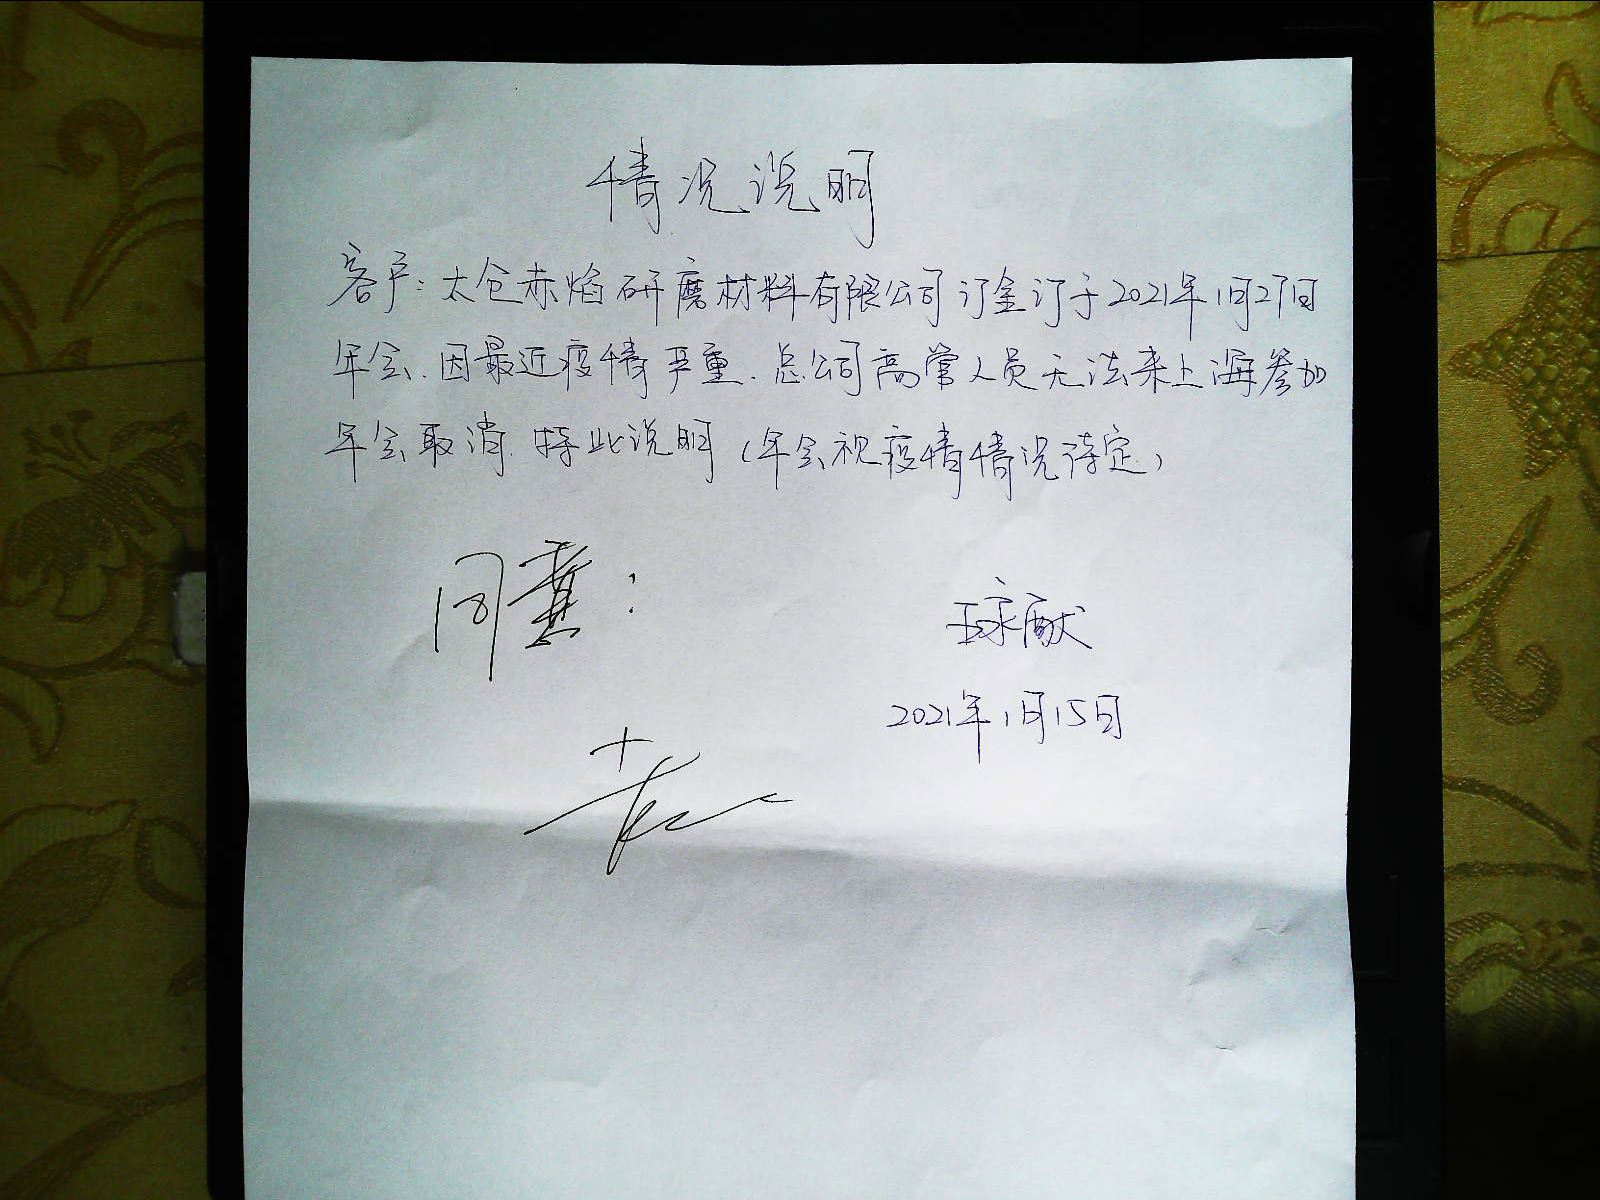 情况说明
客户:太仓赤焰研磨材料有限公司订金订于2021年1月27日
年会.因最近疫情严重.总公司高管人员无法来上海参加
年会取消.特此说明(年会视疫情情况待定)
王永献
2021年1月15日